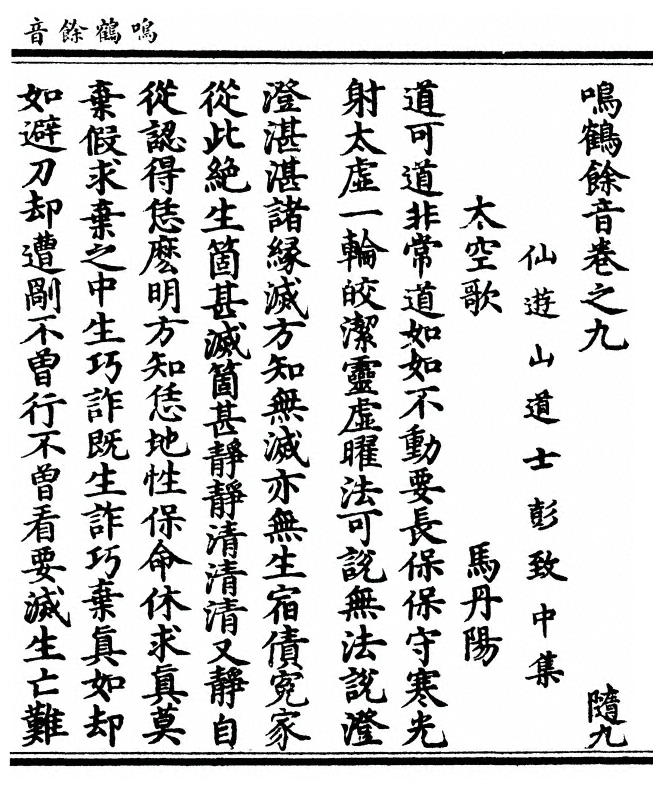 鳴鶴餘音
鳴鶴餘音卷之九　隨九
仙遊山道士彭致中集
太空歌　馬丹陽
道可道非常道如如不動要長保保守寒光
射太虛一輪皎潔靈虛曜法可說無法說澄
澄湛湛諸緣滅方知無滅亦無生宿債寃家
從此絶生箇甚滅箇甚靜靜清清清又靜自
從認得恁麽明方知恁地性保命休求眞莫
棄假求棄之中生巧詐既生詐巧棄眞如却
如避刀却遭剮不曾行不曾看要滅生亡難